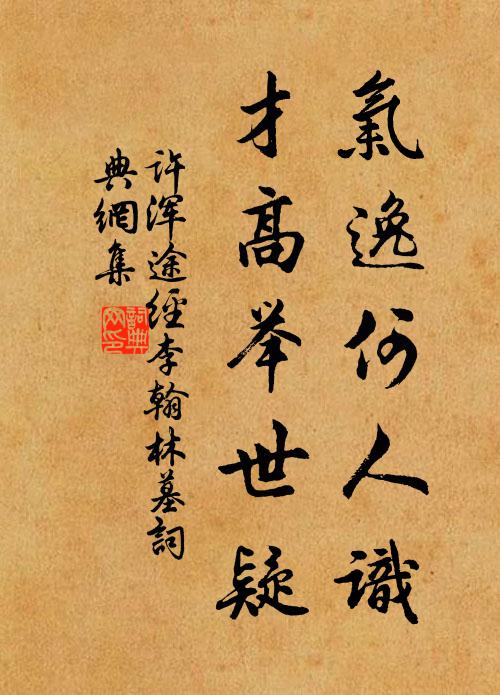 氣逸何人識
才高举世疑
许浑途經李翰林墓詞
典網集
詞典
网印